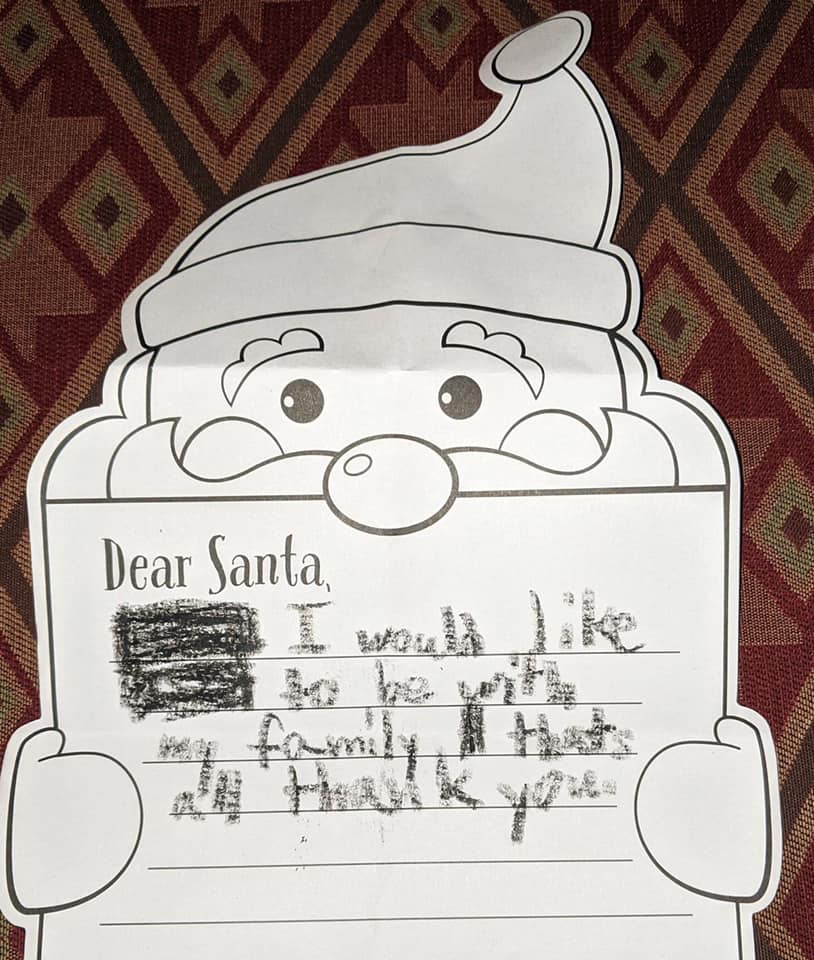 Dear Santa,
I would like
to be with
my family thats
all thank you.